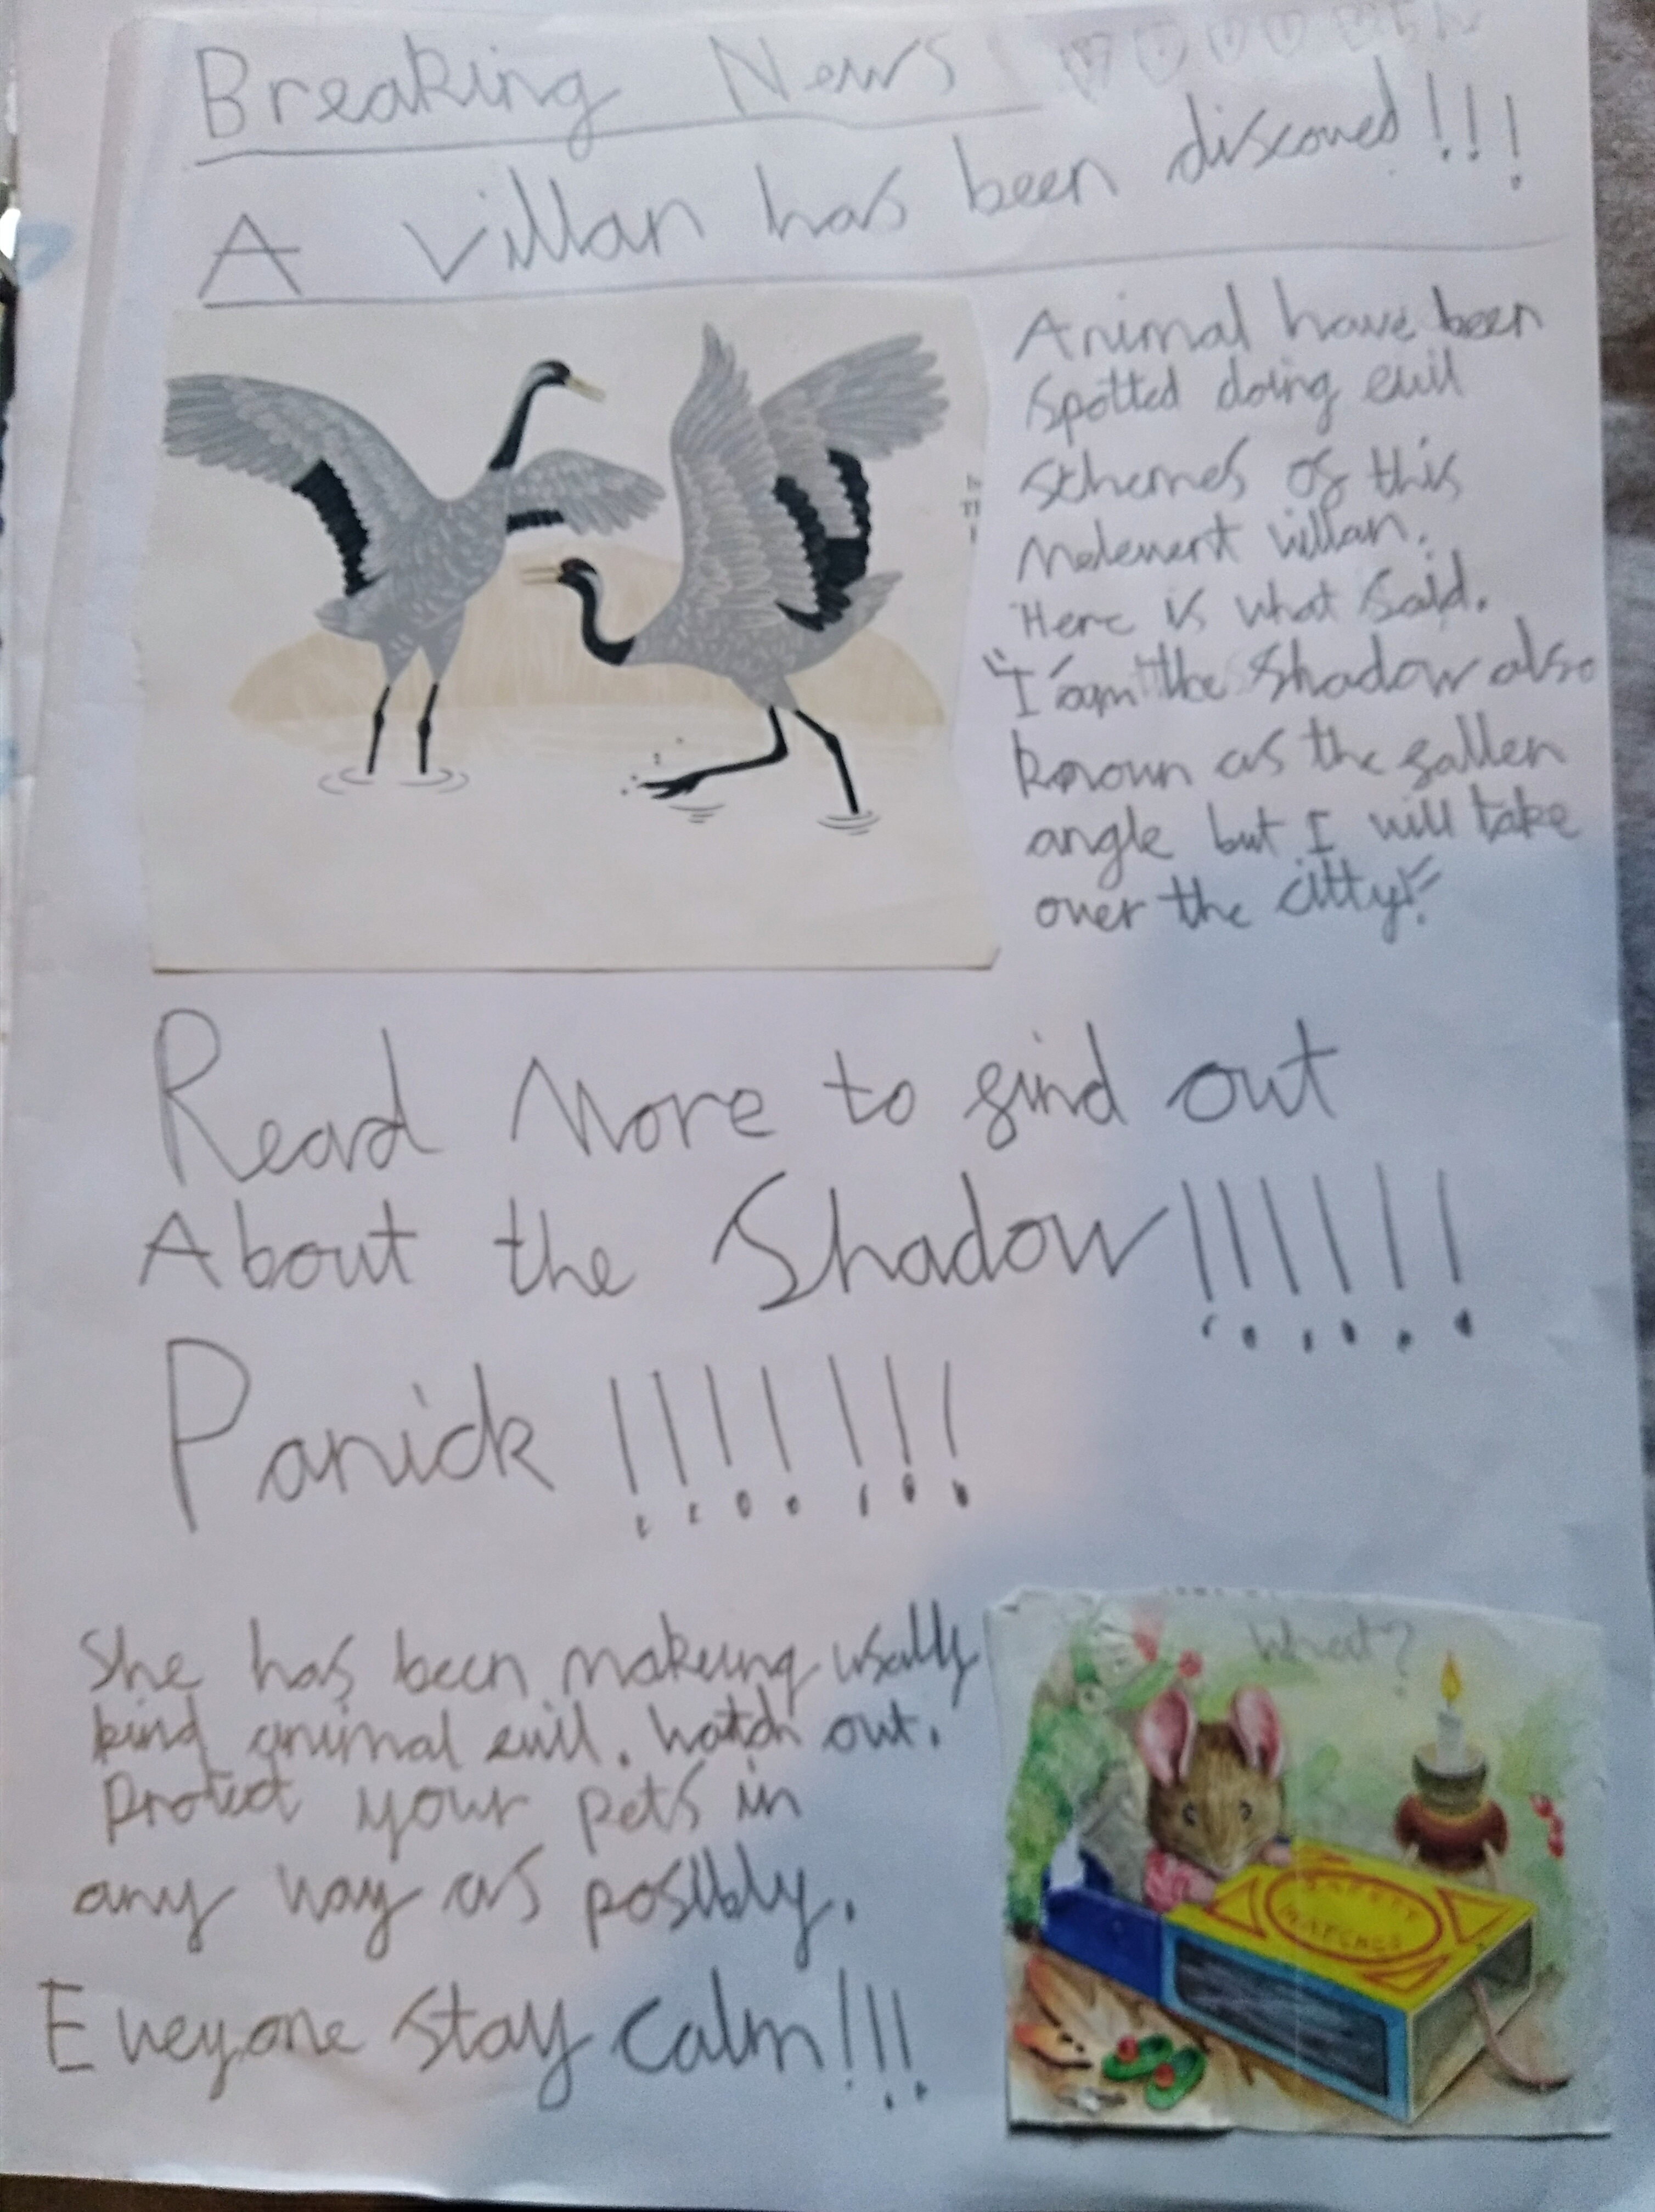 Breaking News
A Villan has been discoued!!!
Animal have been
spotted doing evil
schemes of this
Melevent villan.
Here is what said.
"I am the Shadow also
known as the fallen
angle but I will take
over the citty!"
Read More to find out
About the Shadow!!!!!!
Panick !!!!!!!
She has been makeing usally
kind animal evil. Watch out.
Protect your pets in
any way as posibly.
What?
SAFETY
MATCHES
Eveyone stay calm!!!